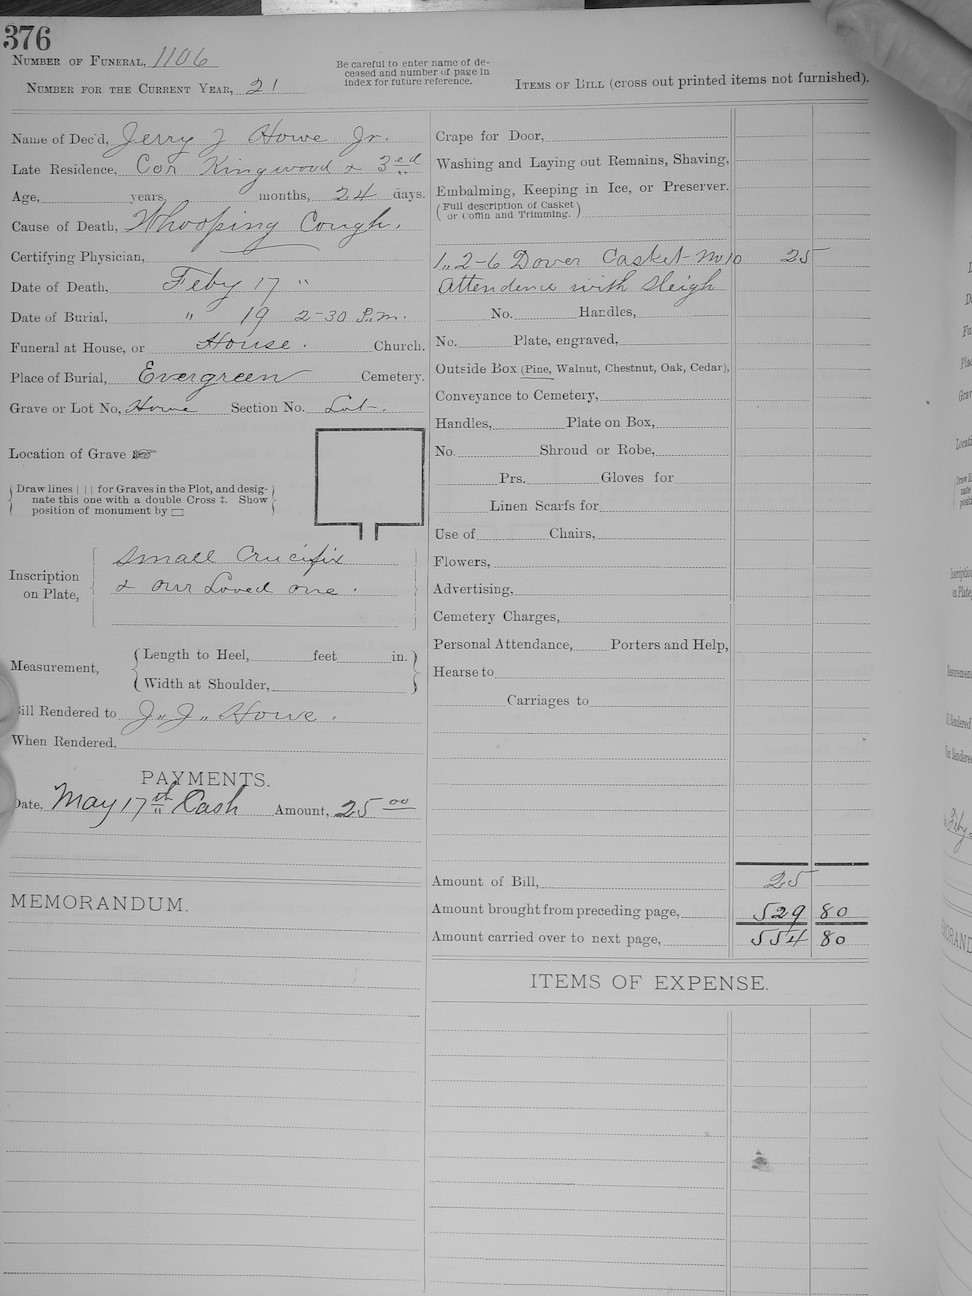 376
NUMBER OF FUNERAL, 1106
NUMBER FOR THE CURRENT YEAR, 21
Be careful to enter name of de-
ceased and number of page in
index for future reference.
ITEMS OF BILL (cross out printed items not furnished).
Name of Dec'd, Jerry J Howe Jr.
Late Residence, Cor Kingwood & 3rd
Age, years, months, 24 days.
Cause of Death, Whooping Cough.
Certifying Physician,
Date of Death, Feby 17 "
Date of Burial, " 19 2-30 P.m.
Funeral at House, or House. Church.
Place of Burial, Evergreen Cemetery.
Grave or Lot No, Howe Section No. Lot-.
Location of Grave ☞
Draw lines | | | for Graves in the Plot, and desig-
nate this one with a double Cross ‡. Show
position of monument by ▭
Inscription
on Plate,
Small Crucifix
& Our Loved one.
Measurement,
Length to Heel, feet in.
Width at Shoulder,
Bill Rendered to J. J. Howe.
When Rendered,
PAYMENTS.
Date, May 17th Cash Amount, 25 00
MEMORANDUM.
Crape for Door,
Washing and Laying out Remains, Shaving,
Embalming, Keeping in Ice, or Preserver.
(Full description of Casket
or Coffin and Trimming.)
1, 2-6 Dover Casket No 10 25
Attendence with Sleigh
No. Handles,
No. Plate, engraved,
Outside Box (Pine, Walnut, Chestnut, Oak, Cedar),
Conveyance to Cemetery,
Handles, Plate on Box,
No. Shroud or Robe,
Prs. Gloves for
Linen Scarfs for
Use of Chairs,
Flowers,
Advertising,
Cemetery Charges,
Personal Attendance, Porters and Help,
Hearse to
Carriages to
Amount of Bill, 25
Amount brought from preceding page, 529 80
Amount carried over to next page, 554 80
ITEMS OF EXPENSE.